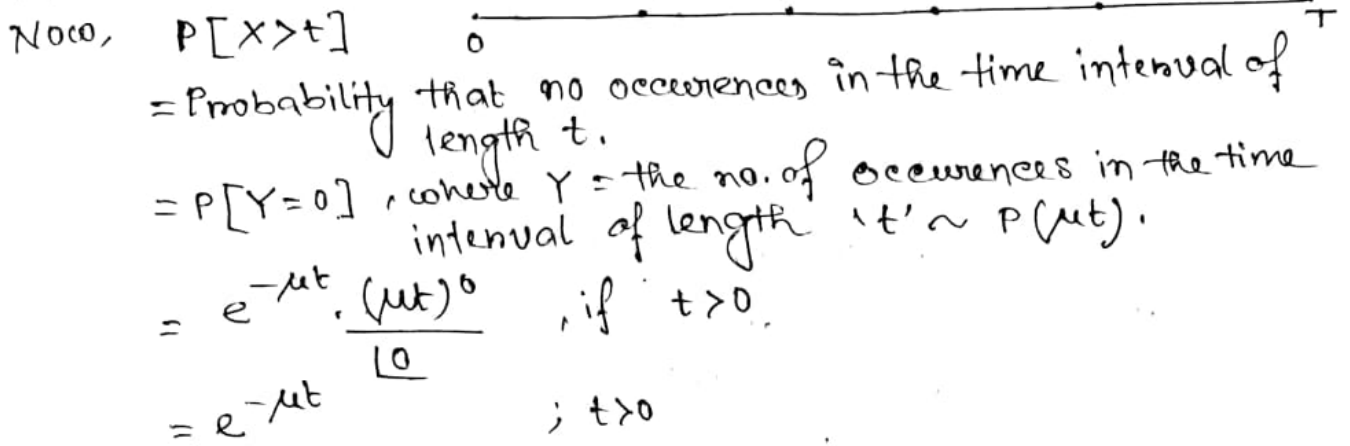 Now, P[X>t] 0 T
= Probability that no occurences in the time interval of
length t.
= P[Y=0], where Y = the no. of occurences in the time
interval of length 't' ~ P(μt).
= e^{-μt} . (μt)^0 / ⌊0 , if t>0.
= e^{-μt} ; t>0